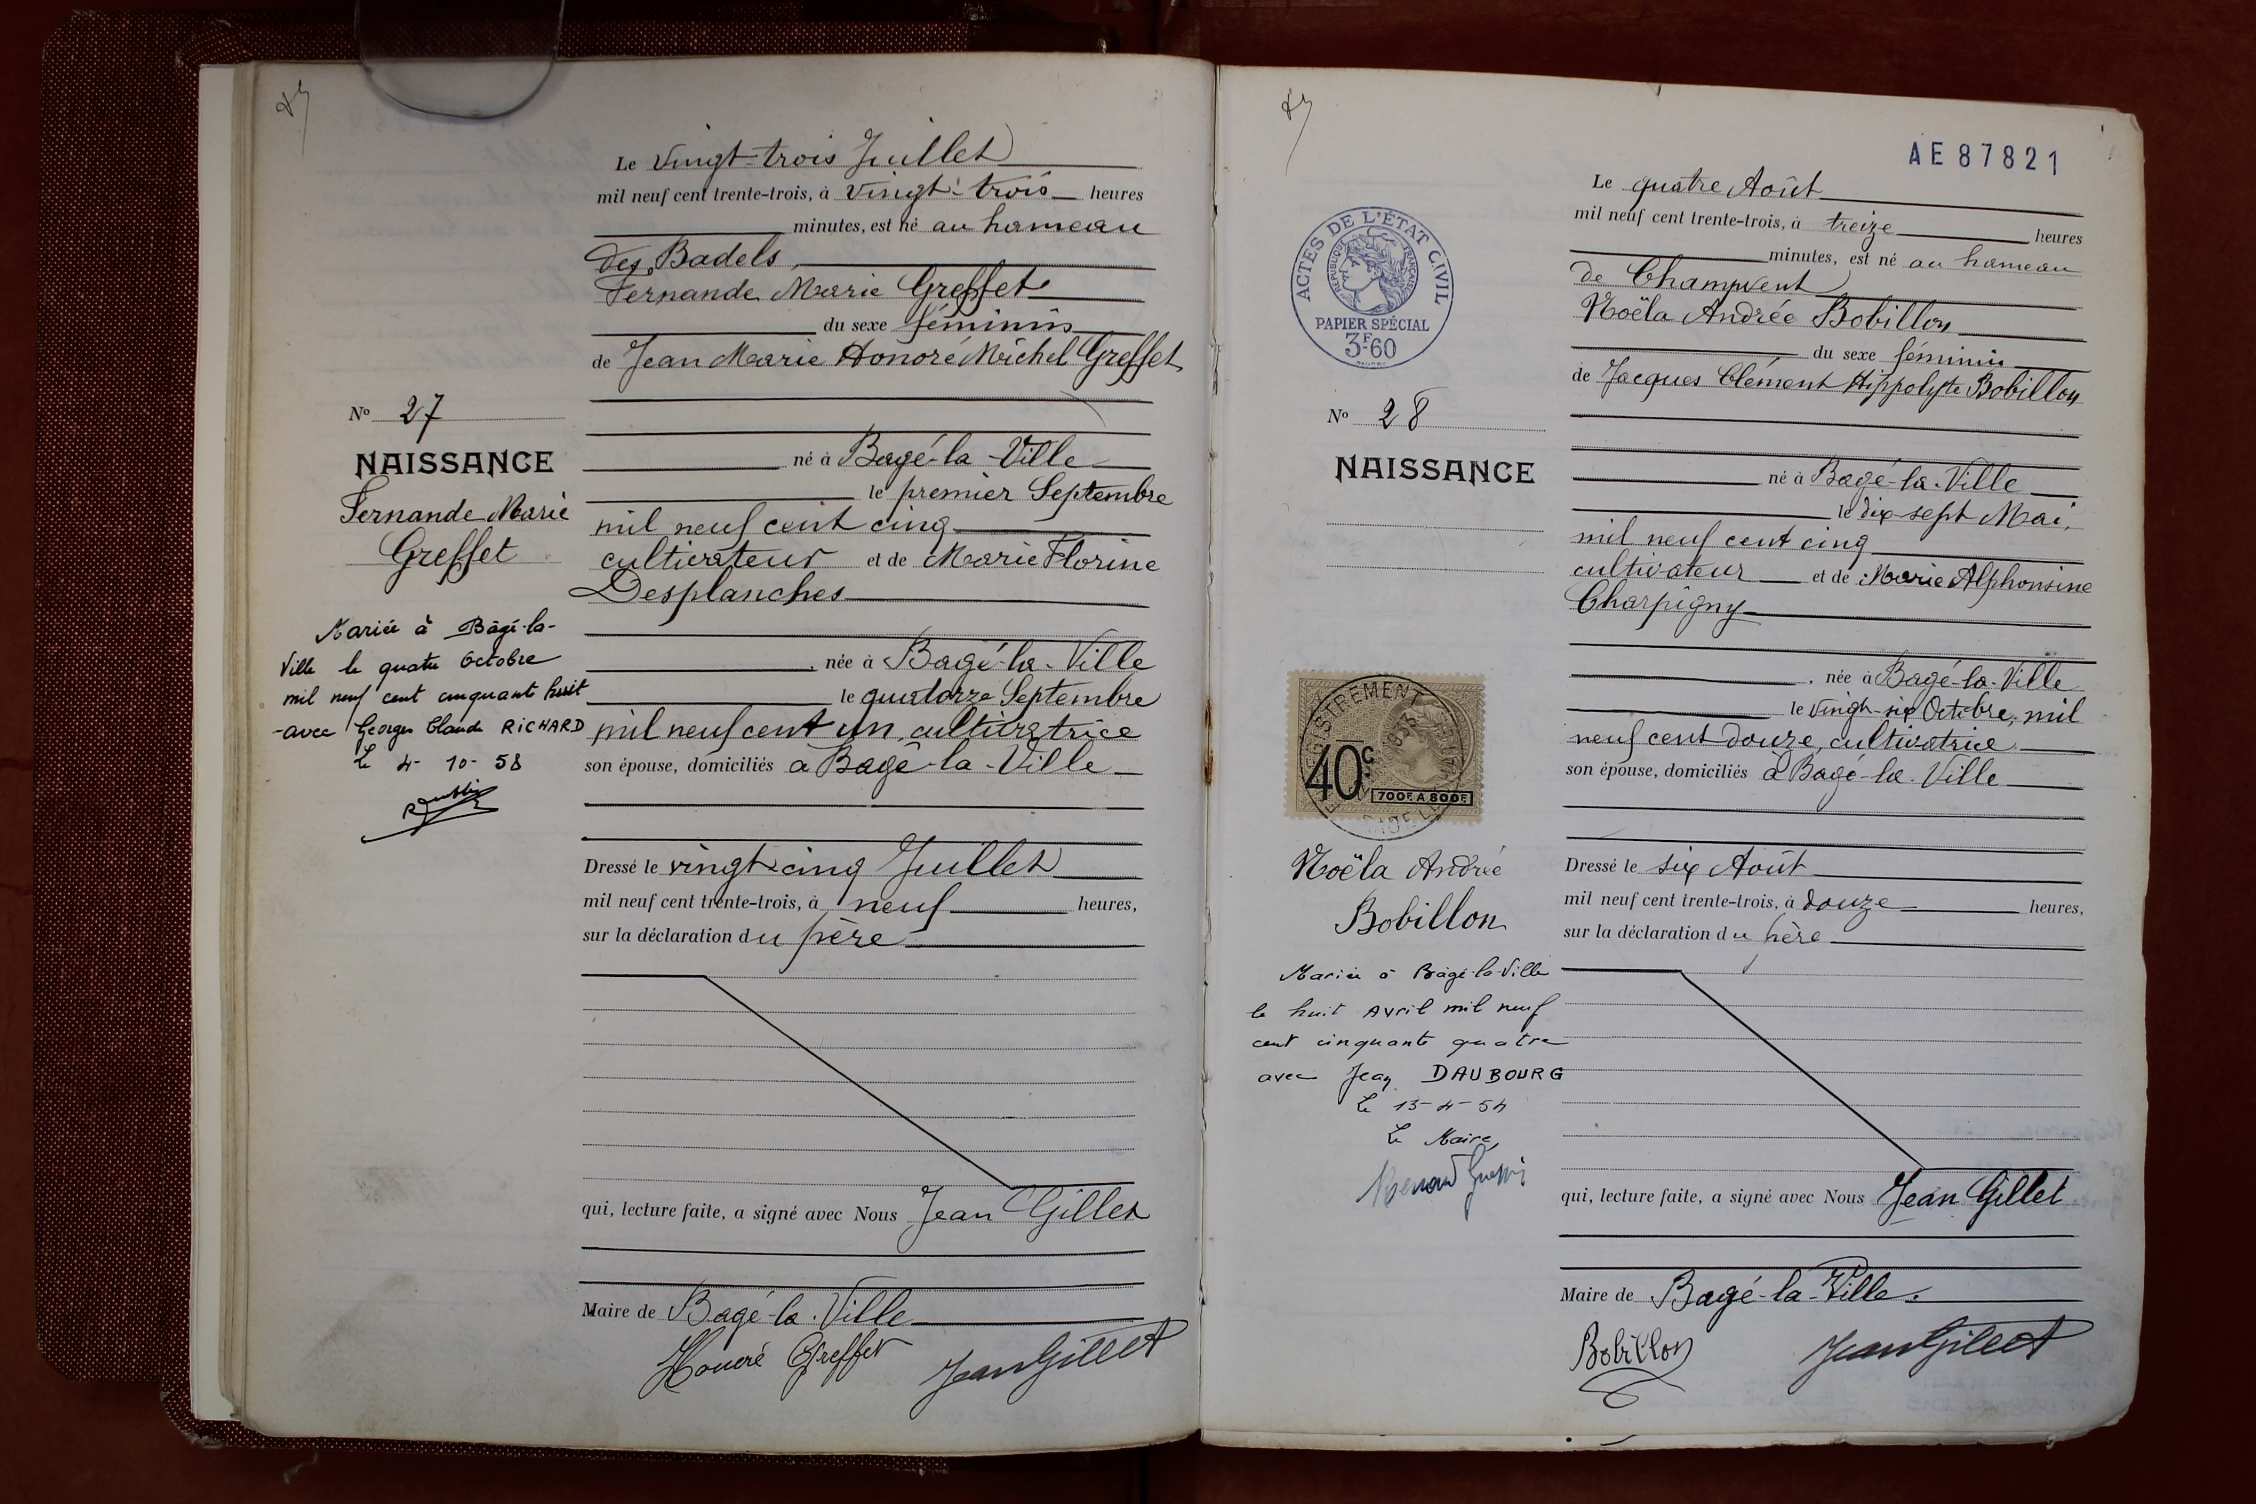 Le vingt-trois Juillet
mil neuf cent trente-trois, à vingt-trois heures
minutes, est né au hameau
des Badels
Fernande Marie Greffet
du sexe féminin
de Jean Marie Honoré Michel Greffet
né à Bagé-la-Ville
le premier Septembre
mil neuf cent cinq
cultivateur et de Marie Florine
Desplanches
née à Bagé-la-Ville
le quatorze Septembre
mil neuf cent un, cultivatrice
son épouse, domiciliés à Bagé-la-Ville
Dressé le vingt-cinq Juillet
mil neuf cent trente-trois, à neuf heures,
sur la déclaration du père
qui, lecture faite, a signé avec Nous Jean Gillet
Maire de Bagé-la-Ville
Honoré Greffet JeanGillet
No 27
NAISSANCE
Fernande Marie
Greffet
Mariée à Bâgé-la-
Ville le quatre Octobre
mil neuf cent cinquante huit
avec Georges Claude RICHARD
Le 4-10-58
AE87821
ACTES DE L'ÉTAT CIVIL
RÉPUBLIQUE FRANÇAISE
PAPIER SPÉCIAL
3F60
Le quatre Août
mil neuf cent trente-trois, à treize heures
minutes, est né au hameau
de Champvent
Noëla Andrée Bobillon
du sexe féminin
de Jacques Clément Hippolyte Bobillon
né à Bagé-la-Ville
le dix-sept Mai
mil neuf cent cinq
cultivateur et de Marie Alphonsine
Charpigny
née à Bagé-la-Ville
le vingt-six Octobre, mil
neuf cent douze, cultivatrice
son épouse, domiciliés à Bagé-la-Ville
Dressé le six Août
mil neuf cent trente-trois, à douze heures,
sur la déclaration du père
qui, lecture faite, a signé avec Nous Jean Gillet
Maire de Bagé-la-Ville.
Bobillon JeanGillet
No 28
NAISSANCE
40c
700F A 800F
Noëla Andrée
Bobillon
Mariée à Bâgé-la-Ville
le huit Avril mil neuf
cent cinquante quatre
avec Jean DAUBOURG
Le 13-4-54
Le Maire,